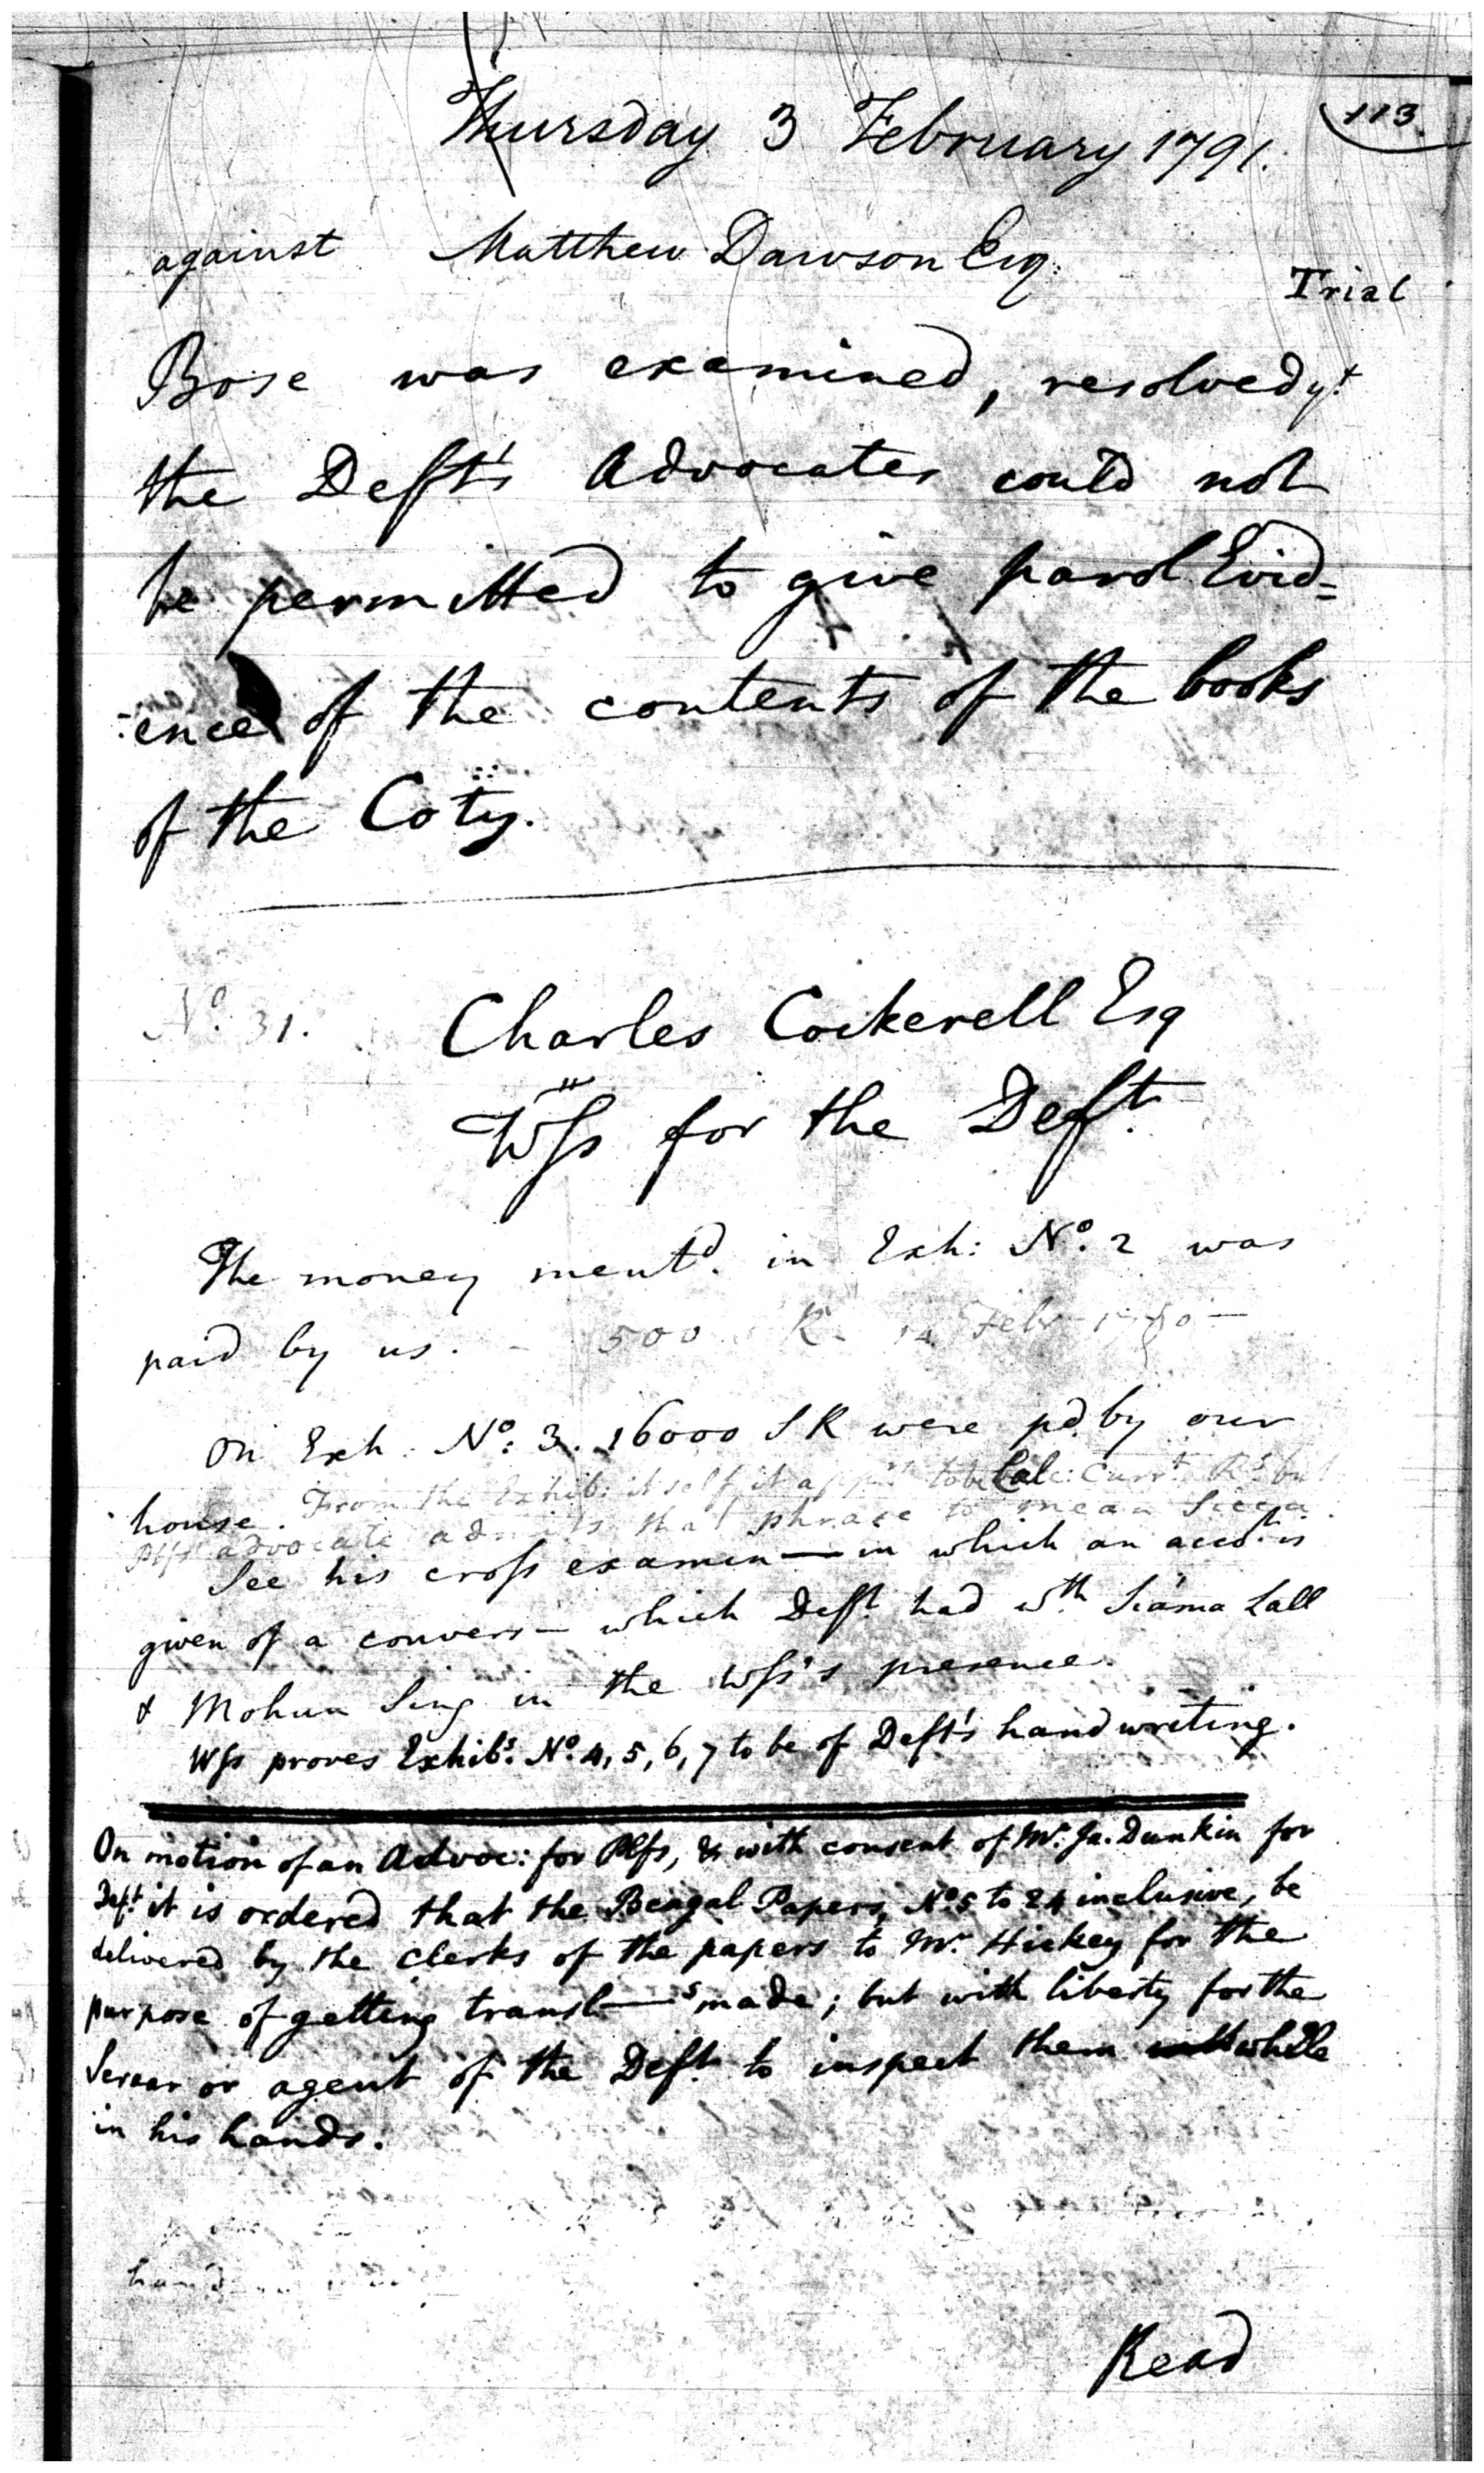 Thursday 3 February 1791.
113.
against Matthew Dawson Esq:
Trial
Bose was examined, resolved yt
the Deft's Advocates could not
be permitted to give parol Evid=
=ence of the contents of the books
of the Coty.
No. 31.
Charles Cockerell Esq
Wss for the Deft.
The money mentd. in Exh: No. 2 was
paid by us. - 500 14 Febr
On Exh. No: 3. 16000 S R were pd. by our
house. From the Exhib: itself it apprs to be Cal: Currt. Rs but
Plfs' advocate admits that phrase to mean Sicca.
See his cross examin— in which an acct. is
given of a convers— which Deft. had wth Siama Lall
& Mohun Sing in the Wss's presence.
Wss proves Exhibs. No. 4, 5, 6, 7 to be of Deft's handwriting.
On motion of an Advoc: for Plfs, & with consent of Mr. Ja. Dunkin for
Deft. it is ordered that the Bengal Papers, No. 5 to 24 inclusive, be
delivered by the Clerks of the papers to Mr. Hickey for the
purpose of getting transl—s made; but with liberty for the
Sercar or agent of the Deft. to inspect them while
in his hands.
Read